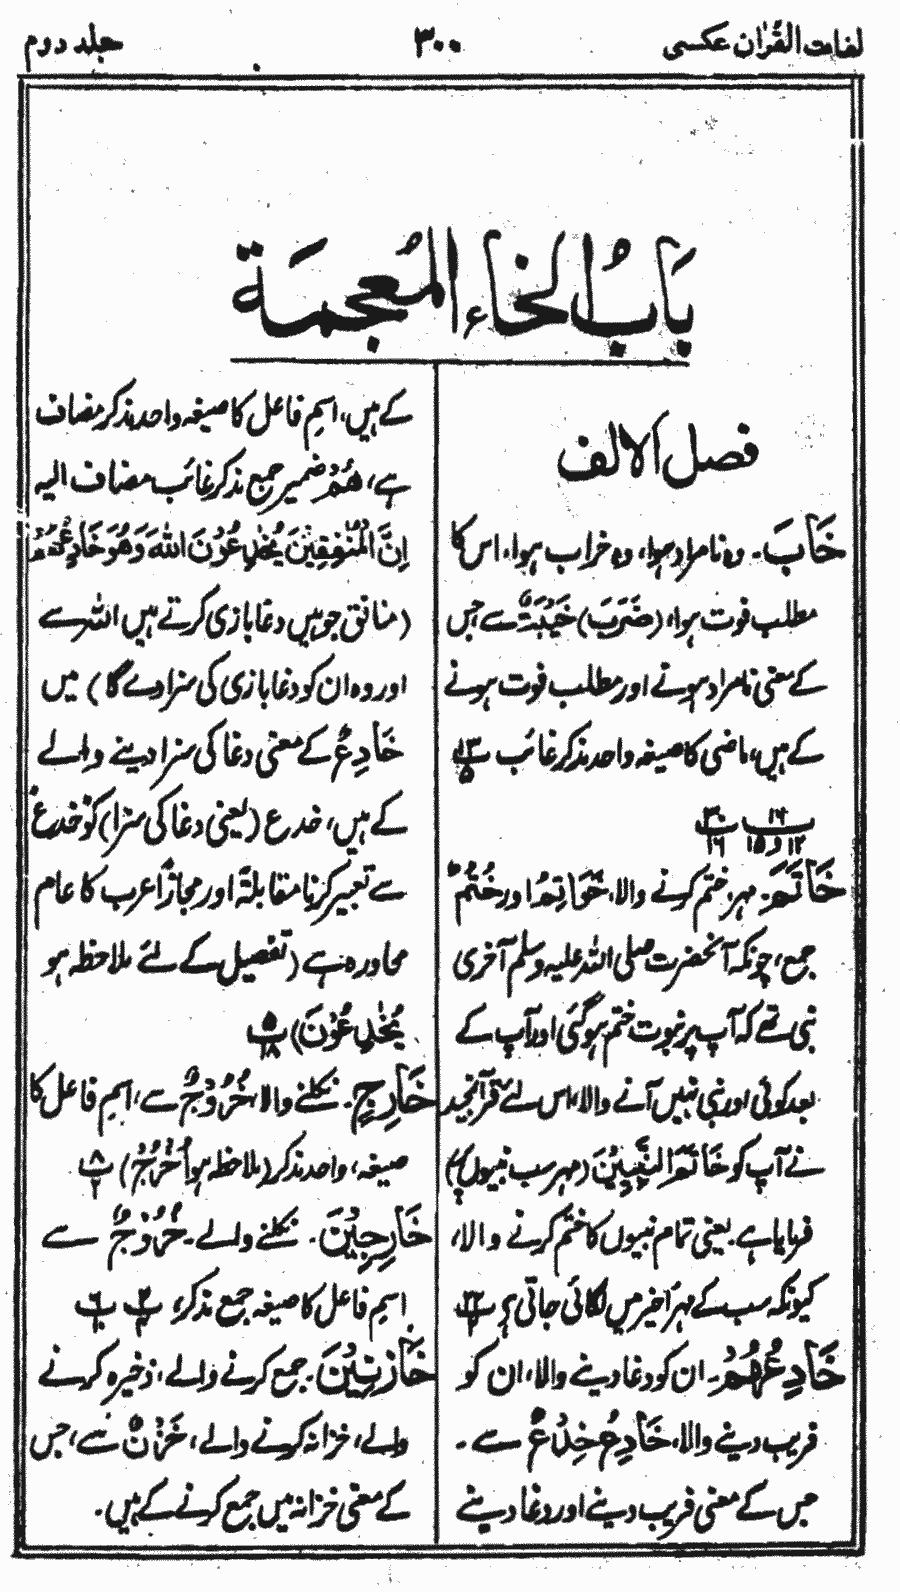 لغات القرآن عکسی
۳۰۰
جلد دوم
بَابُ الخاء المُعجمَة
فصل الالف
خَابَ۔ وہ نامراد ہوا، وہ خراب ہوا، اس کا
مطلب فوت ہوا، (ضَرَبَ) خَيْبَةٌ سے جس
کے معنی نامراد ہونے اور مطلب فوت ہونے
کے ہیں، ماضی کا صیغہ واحد مذکر غائب پ۱۳ ۱۵
پ۱۶ ۱۲ و ۱۵ پ۳۰ ۱۶
خَاتَمَ۔ مہر، ختم کرنے والا، خَوَاتِمُ اور خُتُمٌ
جمع، چونکہ آنحضرت صلی اللہ علیہ وسلم آخری
نبی تھے کہ آپ پر نبوت ختم ہو گئی اور آپ کے
بعد کوئی اور نبی نہیں آنے والا، اس لئے قرآن مجید
نے آپ کو خَاتَمَ النَّبِيِّيْنَ (مہر سب نبیوں پر)
فرمایا ہے۔ یعنی تمام نبیوں کا ختم کرنے والا،
کیونکہ سب کے مہر آخر میں لگائی جاتی ہے پ۲۲ ۲
خَادِعُهُمْ۔ ان کو دغا دینے والا، ان کو
فریب دینے والا، خَادِعٌ خِدَاعٌ سے۔
جس کے معنی فریب دینے اور دغا دینے
کے ہیں، اسم فاعل کا صیغہ واحد مذکر مضاف
ہے، هُمْ ضمیر جمع مذکر غائب مضاف الیہ
اِنَّ الْمُنٰفِقِيْنَ يُخٰدِعُوْنَ اللّٰهَ وَهُوَ خَادِعُهُمْ
(منافق جو ہیں دغا بازی کرتے ہیں اللہ سے
اور وہ ان کو دغا بازی کی سزا دے گا) میں
خَادِعٌ کے معنی دغا کی سزا دینے والے
کے ہیں، خدع (یعنی دغا کی سزا) کو خدع
سے تعبیر کرنا مقابلةً اور مجازاً عرب کا عام
محاورہ ہے (تفصیل کے لئے ملاحظہ ہو
يُخٰدِعُوْنَ) پ۵ ۱۸
خَارِجٍ۔ نکلنے والا، خُرُوْجٌ سے، اسم فاعل کا
صیغہ، واحد مذکر (ملاحظہ ہو اُخْرُجْ) پ۸ ۲
خَارِجِيْنَ۔ نکلنے والے۔ خُرُوْجٌ سے
اسم فاعل کا صیغہ جمع مذکر، پ۲ ۴ پ۶ ۱۰
خَازِنِيْنَ۔ جمع کرنے والے، ذخیرہ کرنے
والے، خزانہ کرنے والے، خَزْنٌ سے، جس
کے معنی خزانہ میں جمع کرنے کے ہیں۔